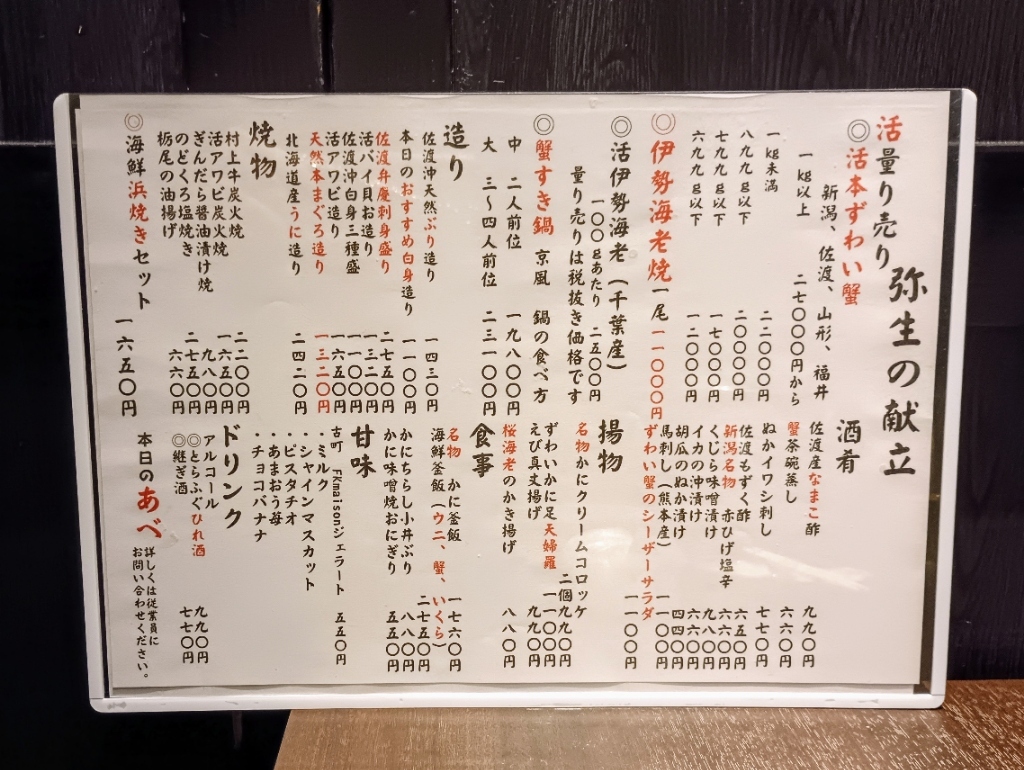 弥生の献立
活量り売り
◎活本ずわい蟹
新潟、佐渡、山形、福井
一kg以上 二七〇〇〇円から
一kg未満 二二〇〇〇円
八九九g以下 二〇〇〇〇円
七九九g以下 一七〇〇〇円
六九九g以下 一二〇〇〇円
◎伊勢海老焼 一尾 一一〇〇〇円
◎活伊勢海老(千葉産)
一〇〇gあたり 二五〇〇円
量り売りは税抜き価格です
◎蟹すき鍋 京風 鍋の食べ方
中 二人前位 一九八〇〇円
大 三〜四人前位 二三一〇〇円
造り
佐渡沖天然ぶり造り 一四三〇円
本日のおすすめ白身造り 一一〇〇円
佐渡弁慶刺身盛り 二七五〇円
活バイ貝お造り 一三二〇円
佐渡沖白身三種盛 一一〇〇円
活アワビ造り 一六五〇円
天然本まぐろ造り 一三二〇円
北海道産うに造り 二四二〇円
焼物
村上牛炭火焼 二二〇〇円
活アワビ炭火焼 一六五〇円
ぎんだら醤油漬け焼 九八〇円
のどくろ塩焼き 二七五〇円
栃尾の油揚げ 六六〇円
◎海鮮浜焼きセット 一六五〇円
酒肴
佐渡産なまこ酢 九九〇円
蟹茶碗蒸し 六六〇円
ぬかイワシ刺し 七七〇円
佐渡もずく酢 六五〇円
新潟名物 赤ひげ塩辛 六六〇円
くじら味噌漬け 九八〇円
イカの沖漬け 六六〇円
胡瓜のぬか漬け 四四〇円
馬刺し(熊本産) 一一〇〇円
ずわい蟹のシーザーサラダ 一一〇〇円
揚物
名物かにクリームコロッケ 二個九九〇円
ずわいかに足天婦羅 一一〇〇円
えび真丈揚げ 九九〇円
桜海老のかき揚げ 八八〇円
食事
名物 かに釜飯 一七六〇円
海鮮釜飯(ウニ、蟹、いくら) 二七五〇円
かにちらし小丼ぶり 八八〇円
かに味噌焼おにぎり 五五〇円
甘味
古町 FKmaisonジェラート 五五〇円
・ミルク
・シャインマスカット
・ピスタチオ
・あまおう苺
・チョコバナナ
ドリンク
アルコール
◎とらふぐひれ酒 九九〇円
◎継ぎ酒 七七〇円
本日のあべ
詳しくは従業員に
お問い合わせください。